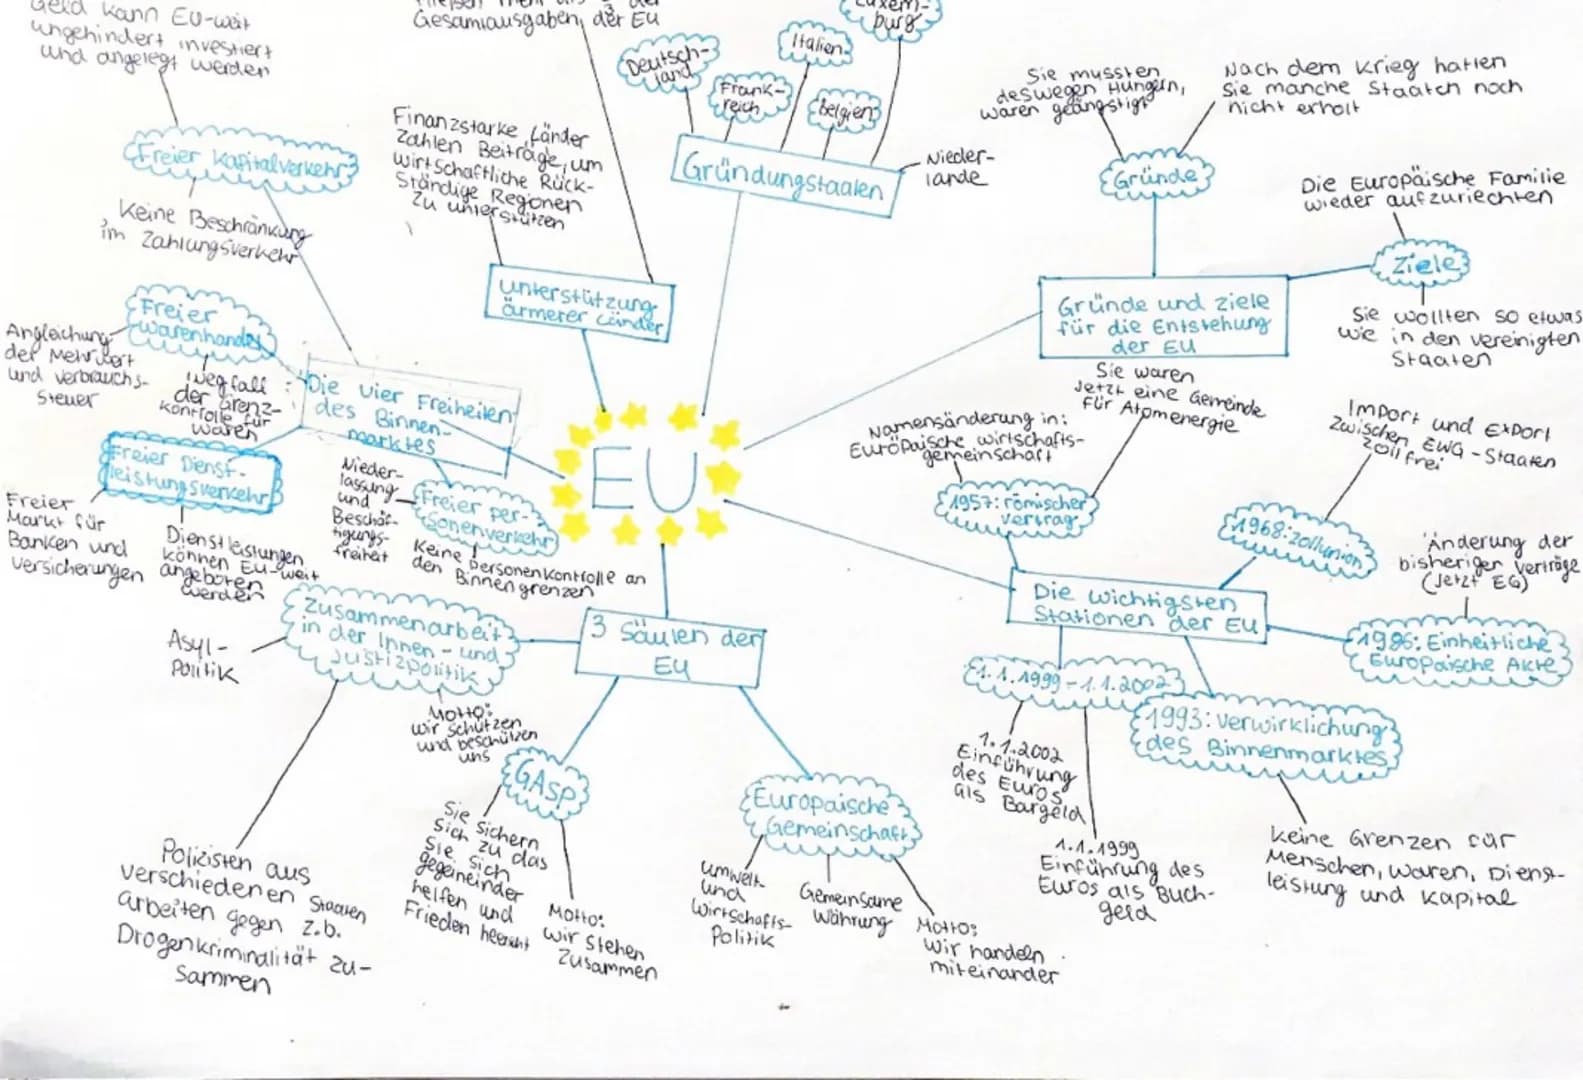 Geld kann EU-weit
ungehindert investiert
und angelegt werden
Freier Kapitalverkehr
Keine Beschränkung
im Zahlungsverkehr
mehr als
der
Gesamtausgaben der EU
Finanzstarke Länder
Zahlen Beiträge, um
wirtschaftliche Rück-
Ständige Regionen
zu unterstützen
unterstützung
ärmerer Länder
Deutsch-
land
Frank-
reich
Italien
Belgien
Luxem-
burg
Nieder-
lande
Gründungstaaten
Sie mussten
deswegen Hungern,
waren geängstigt
Nach dem Krieg hatten
Sie manche Staaten noch
nicht erholt
Gründe
Die Europäische Familie
wieder aufzuriechten
Ziele
Sie wollten so etwas
wie in den vereinigten
Staaten
Gründe und ziele
für die Entstehung
der EU
Freier
warenhandel
Angleichung
der Mehrwert
und verbrauchs-
Steuer
Wegfall
der Grenz-
kontrolle für
waren
Die vier Freiheiten
des Binnen-
marktes
Freier Dienst-
leistungsverkehr
Freier
Markt für
Banken und
versicherungen
Dienstleistungen
können EU-weit
angeboten
werden
Nieder-
lassung
und
Beschäf-
tigungs-
freiheit
Freier per-
sonenverkehr
Keine Personenkontrolle an
den Binnengrenzen
EU
Sie waren
Jetzt eine Gemeinde
für Atomenergie
Namensänderung in:
Europäische wirtschafts-
gemeinschaft
1957: römischer
vertrag
Import und Export
zwischen EWG-Staaten
zollfrei
1968: zollunion
Änderung der
bisheriger verträge
(Jetzt EG)
1986: Einheitliche
Europäische Akte
Die wichtigsten
Stationen der EU
1.1.1999-1.1.2002
1.1.2002
Einführung
des Euros
als Bargeld
1.1.1999
Einführung des
Euros als Buch-
geld
1993: verwirklichung
des Binnenmarktes
Keine Grenzen für
Menschen, waren, Dienst-
leistung und Kapital
3 Säulen der
EU
Zusammenarbeit
in der Innen- und
Justizpolitik
Asyl-
Politik
Motto:
wir schützen
und beschützen
uns
Polizisten aus
verschiedenen Staaten
arbeiten gegen z.b.
Drogenkriminalität zu-
sammen
GASP
Sie sichern
sich zu das
sie sich
gegeneinder
helfen und
Frieden heerscht
Motto:
wir stehen
zusammen
Europäische
Gemeinschaft
umwelt-
und
wirtschafts-
Politik
Gemeinsame
Währung
Motto:
wir handeln
miteinander